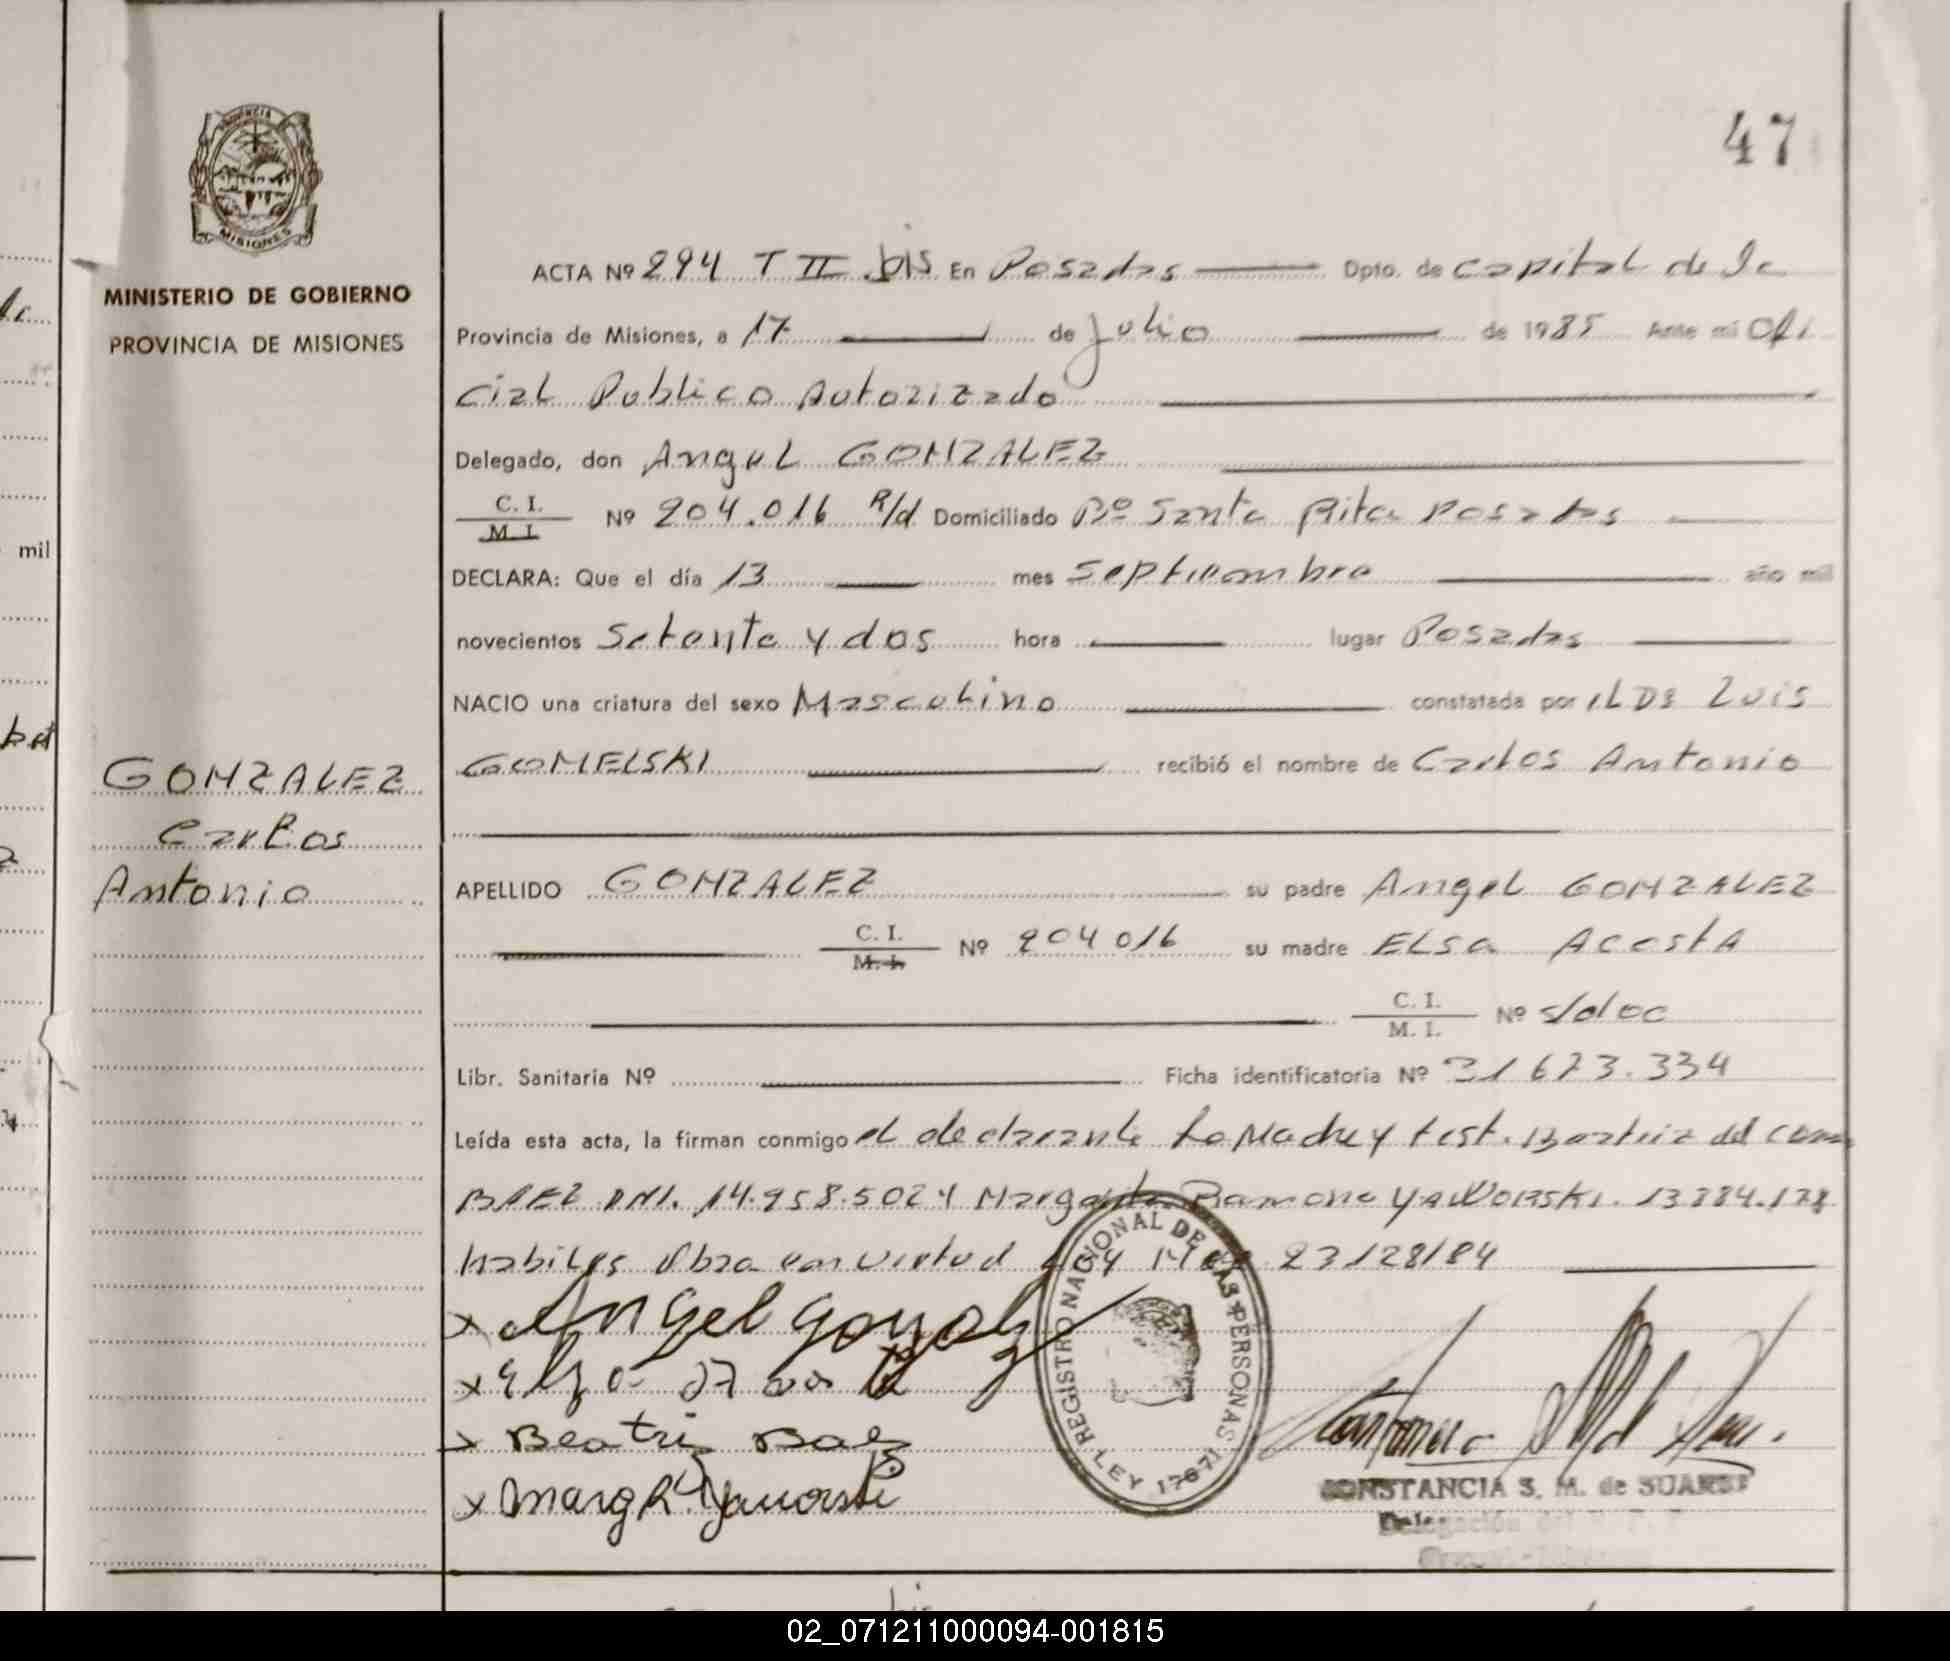 47
PROVINCIA
MISIONES
MINISTERIO DE GOBIERNO
PROVINCIA DE MISIONES
ACTA Nº 294 T II bis En Posadas Dpto. de Capital de la
Provincia de Misiones, a 17 de Julio de 1985 Ante mi Ofi
cial Publico Autorizado
Delegado, don Angel GONZALEZ
C. I.
M. I.
Nº 204.016 R/d Domiciliado Bº Santa Rita Posadas
DECLARA: Que el día 13 mes Septiembre año mil
novecientos Setenta y dos hora lugar Posadas
NACIO una criatura del sexo Masculino constatada por ILDE Luis
GOMELSKI recibió el nombre de Carlos Antonio
GONZALEZ
Carlos
Antonio
APELLIDO GONZALEZ su padre Angel GONZALEZ
C. I.
M. I.
Nº 204016 su madre ELSA ACOSTA
C. I.
M. I.
Nº s/doc
Libr. Sanitaria Nº Ficha identificatoria Nº 31673.334
Leída esta acta, la firman conmigo el declarante La Madre y test. Beatriz del
BAEZ DNI. 14.958.502 y Margarita Ramona YAWORSKI. 13384.178
habiles Obra en virtud Ley Nº 23128/84
x Angel Gonzalez
x Elsa
x Beatriz Baez
x Marg R. Yaworski
REGISTRO NACIONAL DE LAS PERSONAS
LEY 17671
CONSTANCIA S. M. de SUAREZ
Delegación
mil
02_071211000094-001815